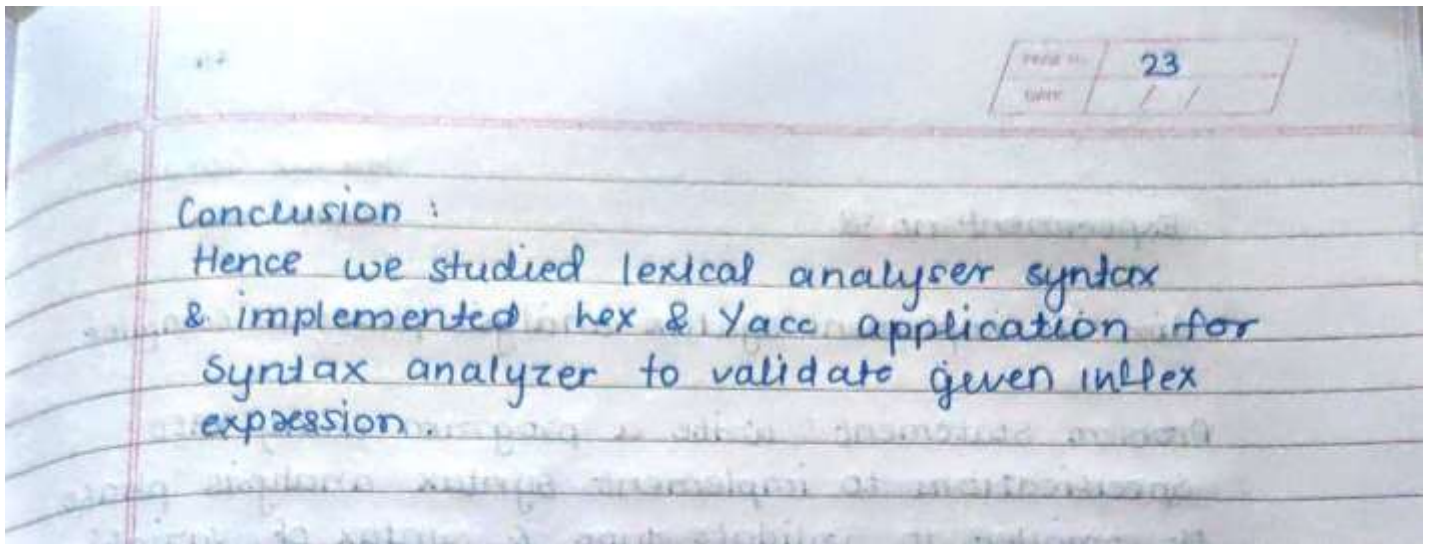 PAGE No. 23
DATE / /
Conclusion :
Hence we studied lexical analyser syntax
& implemented hex & Yacc application for
syntax analyzer to validate given inffex
expression.